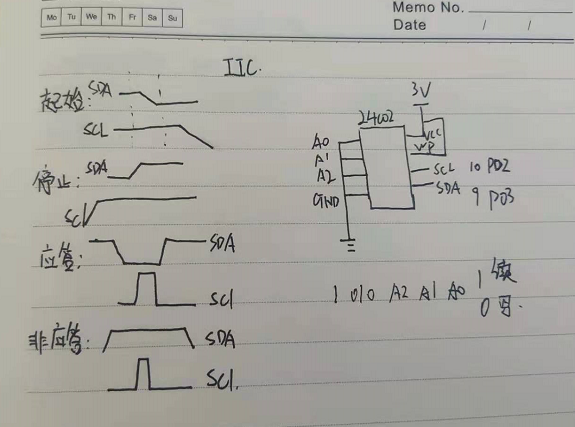 Memo No.
Mo Tu We Th Fr Sa Su
Date / /
IIC.
起始: SDA
SCL
停止: SDA
SCl
应答: SDA
SCl
非应答: SDA
SCl.
3V
24C02
A0
A1
A2
GND
VCC
WP
SCL 10 PD2
SDA 9 PD3
1 010 A2 A1 A0 1 读
0 写.